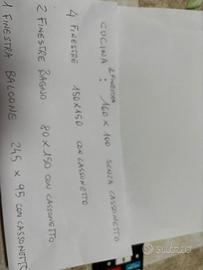 2 FINESTRE
CUCINA : 160 x 160 SENZA CASSONETTO
4 FINESTRE 150x150 CON CASSONETTO
2 FINESTRE BAGNO 80 x 150 CON CASSONETTO
1 FINESTRA BALCONE 245 x 95 CON CASSONETTO
SUBITO